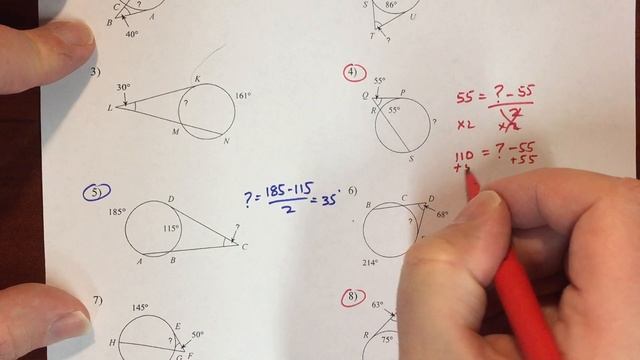 C ? A
B
40°
S 86°
U
T ?
3)
30° K
L ? 161°
M N
4)
55°
Q P
R 55° ?
S
55 = ? - 55
2
x2 x2
110 = ? - 55
+ +55
5)
D
185°
115° ?
A B C
? = 185-115 = 35°
2
6)
B C D
? 68°
214°
7)
145°
E
? 50°
H G F
8)
63°
R 75°